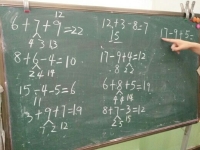 12
6+7+9=22
4 3 13
8+6-4=10
2 4 14
15-4-5=6
11
3+9+7=19
1 2 12
12+3-8=7
15
17-9+4=12
8
6+8+5=19
4 4 14
8+7-3=12
2 5 15
17-9+5=